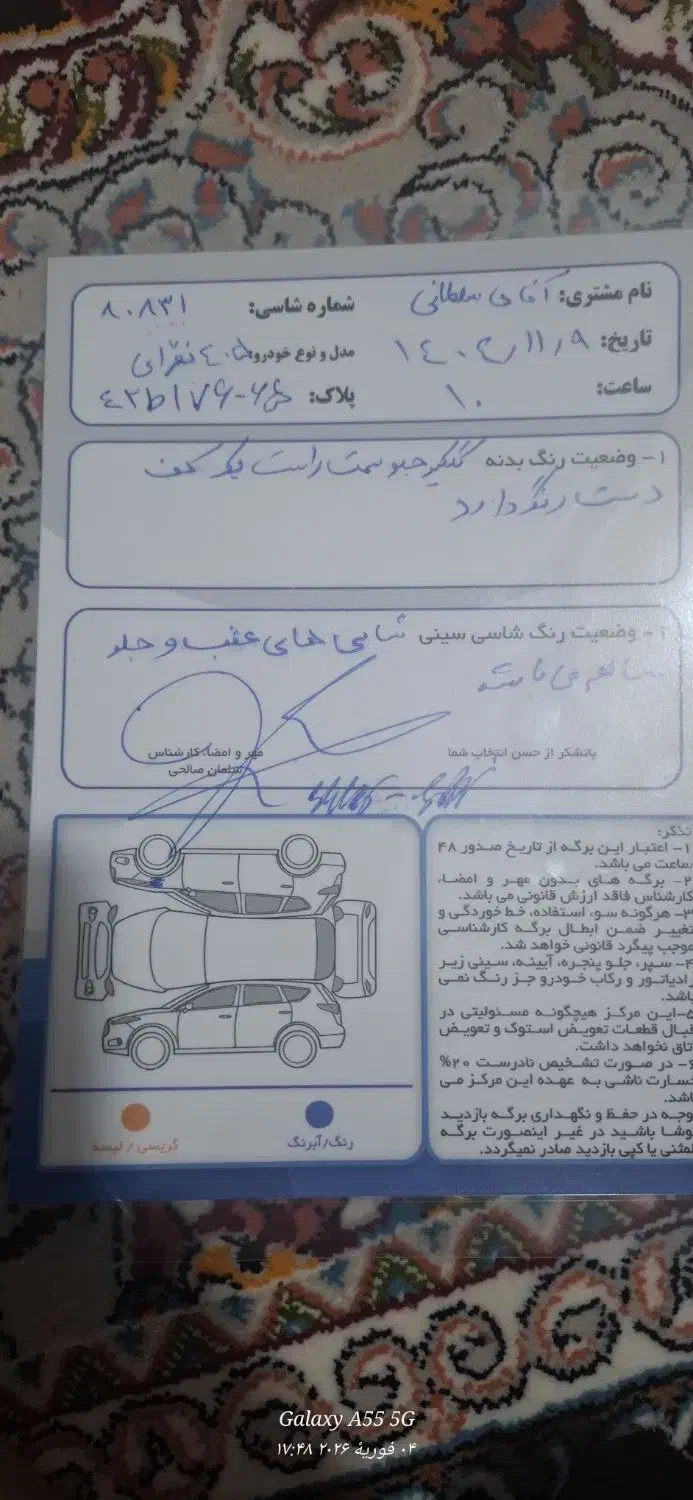 نام مشتری: آقای سلطانی
شماره شاسی: ۸۰۸۳۱
تاریخ: ۱۴۰۴/۱۱/۹
مدل و نوع خودرو: ۴۰۵ نقره‌ای
ساعت: ۱۰
پلاک:
۱- وضعیت رنگ بدنه گلگیر جلو سمت راست یک کف
دست رنگ دارد
۲- وضعیت رنگ شاسی سینی شاسی های عقب و جلو
سالم می باشد
باتشکر از حسن انتخاب شما
مهر و امضاء کارشناس
سلمان صالحی
تذکر:
۱- اعتبار این برگه از تاریخ صدور ۴۸
ساعت می باشد.
۲- برگه های بدون مهر و امضاء
کارشناس فاقد ارزش قانونی می باشد.
۳- هرگونه سوء استفاده، خط خوردگی و
تغییر ضمن ابطال برگه کارشناسی
موجب پیگرد قانونی خواهد شد.
۴- سپر، جلو پنجره، آیینه، سینی زیر
رادیاتور و رکاب خودرو جز رنگ نمی
باشد.
۵- این مرکز هیچگونه مسئولیتی در
قبال قطعات تعویض استوک و تعویض
اتاق نخواهد داشت.
۶- در صورت تشخیص نادرست ۲۰%
خسارت ناشی به عهده این مرکز می
باشد.
توجه در حفظ و نگهداری برگه بازدید
کوشا باشید در غیر اینصورت برگه
المثنی یا کپی بازدید صادر نمیگردد.
رنگ/آبرنگ
گریسی / لیسه
Galaxy A55 5G
۰۴ فوریهٔ ۲۰۲۶ ۱۷:۴۸